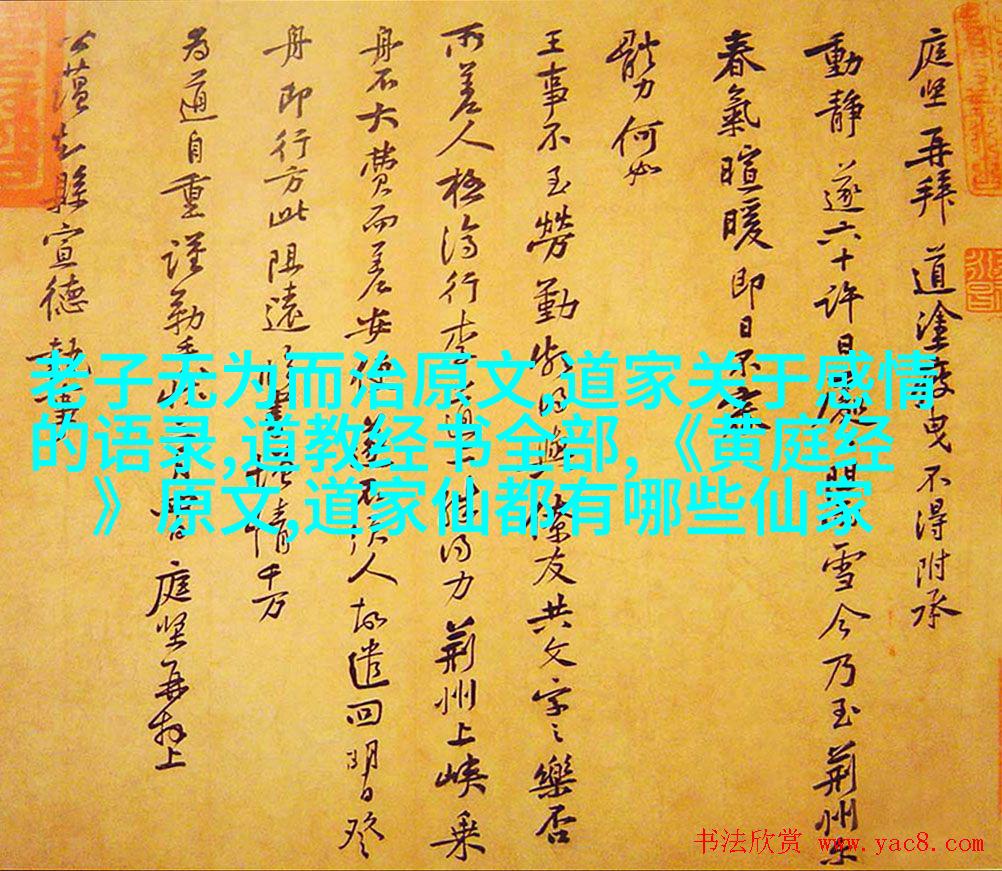 庭坚再拜 道塗曳不得附承
動靜 遂六十許日 雪今乃至荆州
春氣暄暖即日不審
體力何如
王事不至勞勤 僚友共文字之樂否
所差人極濟行李 得力荆州上峡乘
舟不大費而差安 遂不須人故遣回明日登
舟即行方此阻遠 書增情千万
为道自重謹勒 庭坚再拜上
知縣宣德執事
老子无为而治原文,道家关于感情
的语录,道教经书全部,《黄庭经
》原文,道家仙都有哪些仙家
书法欣赏 www.yac8.com